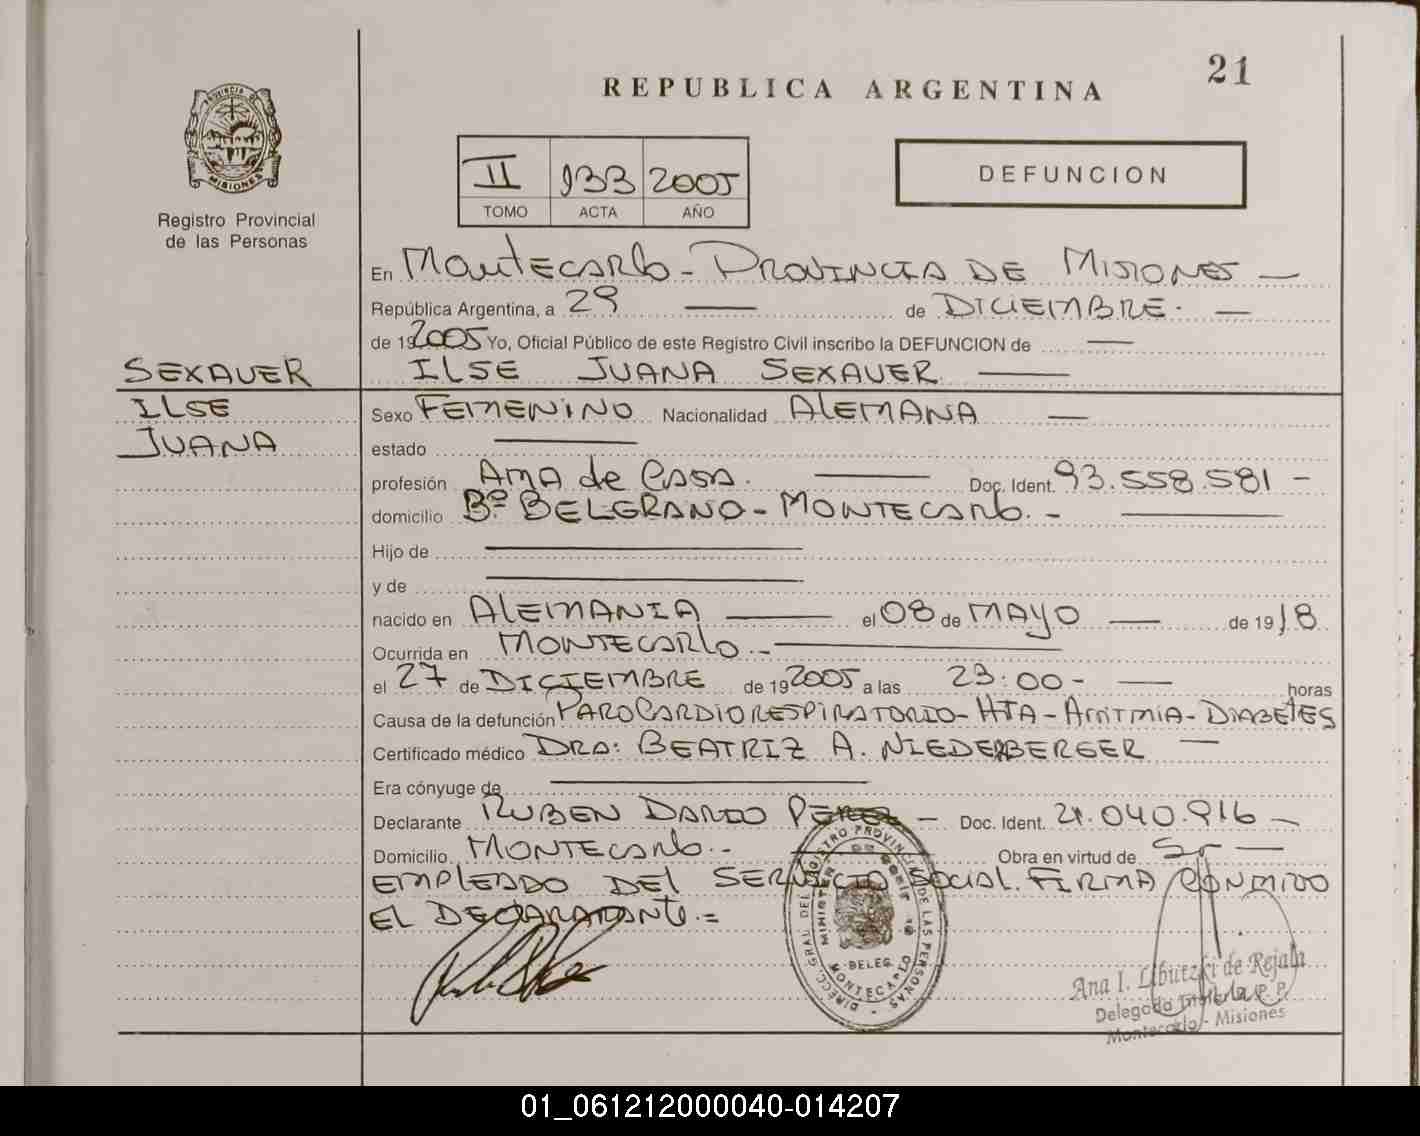 21
REPUBLICA ARGENTINA
PROVINCIA DE
MISIONES
Registro Provincial
de las Personas
II 133 2005
TOMO ACTA AÑO
DEFUNCION
En MONTECARLO - PROVINCIA DE MISIONES —
República Argentina, a 29 — de DICIEMBRE. —
de 192005 Yo, Oficial Público de este Registro Civil inscribo la DEFUNCION de —
SEXAUER ILSE JUANA SEXAUER —
ILSE Sexo FEMENINO Nacionalidad ALEMANA —
JUANA estado —
profesión AMA de CASA. — Doc. Ident. 93.558.581 -
domicilio Bº BELGRANO - MONTECARLO. - —
Hijo de —
y de —
nacido en ALEMANIA — el 08 de MAYO — de 1918
Ocurrida en MONTECARLO. - —
el 27 de DICIEMBRE de 192005 a las 23:00 - — horas
Causa de la defunción PAROCARDIORESPIRATORIO - HTA - ARRITMIA - DIABETES
Certificado médico DRA: BEATRIZ A. NIEDERBERGER —
Era cónyuge de —
Declarante RUBEN DARIO PEREZ — Doc. Ident. 21.040.916 -
Domicilio MONTECARLO. - Obra en virtud de Ser —
EMPLEADO DEL SERVICIO SOCIAL. FIRMA CONMIGO
EL DECLARANTE. =
DIRECC. GRAL DEL REGISTRO PROVINCIAL DE LAS PERSONAS
MINISTER DE GOBIER
DELEG
MONTECARLO
Ana I. Libutzki de Rejala
Delegada Titular R. P. P.
Montecarlo - Misiones
01_061212000040-014207